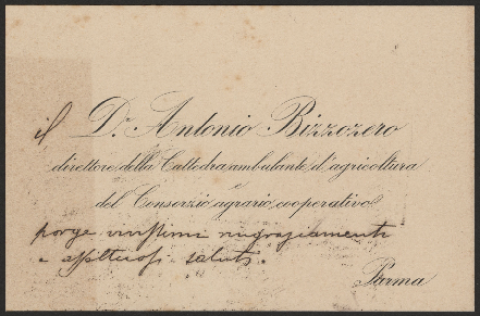 il D.r Antonio Bizzozero
direttore della Cattedra ambulante d'agricoltura
e
del Consorzio agrario cooperativo
porge vivissimi ringraziamenti
e saluti.
Parma